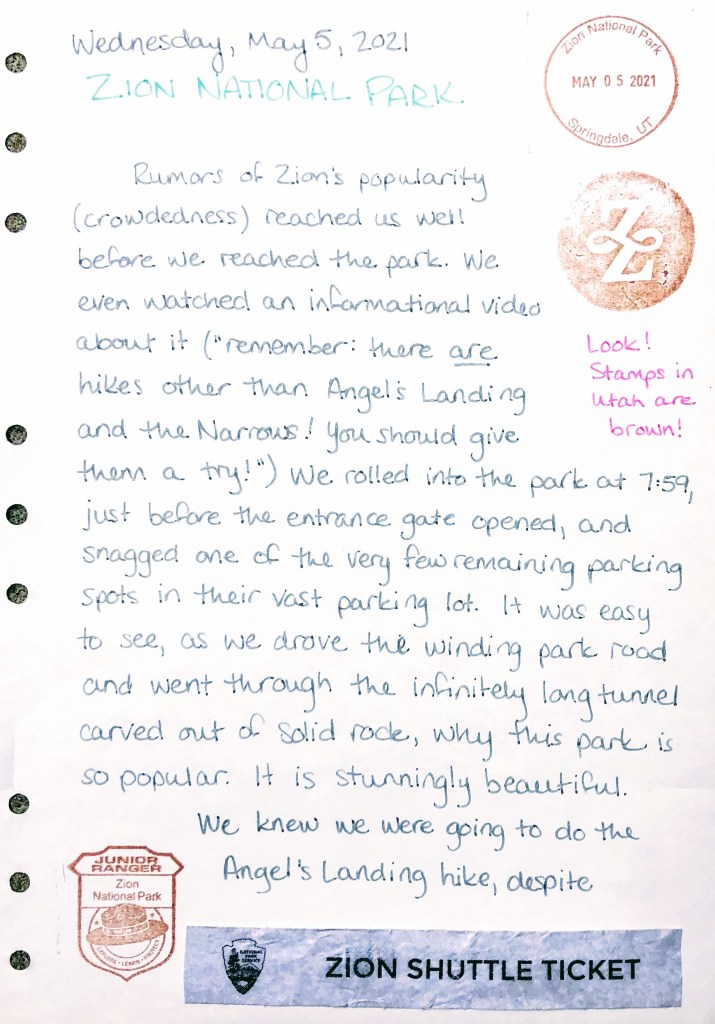 Wednesday, May 5, 2021
ZION NATIONAL PARK
Zion National Park
MAY 05 2021
Springdale, UT
Rumors of Zion's popularity
(crowdedness) reached us well
before we reached the park. We
even watched an informational video
about it ("remember: there are
hikes other than Angel's Landing
and the Narrows! You should give
them a try!") We rolled into the park at 7:59,
just before the entrance gate opened, and
snagged one of the very few remaining parking
spots in their vast parking lot. It was easy
to see, as we drove the winding park road
and went through the infinitely long tunnel
carved out of solid rock, why this park is
so popular. It is stunningly beautiful.
We knew we were going to do the
Angel's Landing hike, despite
Z
Z
Look!
Stamps in
Utah are
brown!
JUNIOR
RANGER
Zion
National Park
EXPLORE · LEARN · PROTECT
NATIONAL
PARK
SERVICE
ZION SHUTTLE TICKET